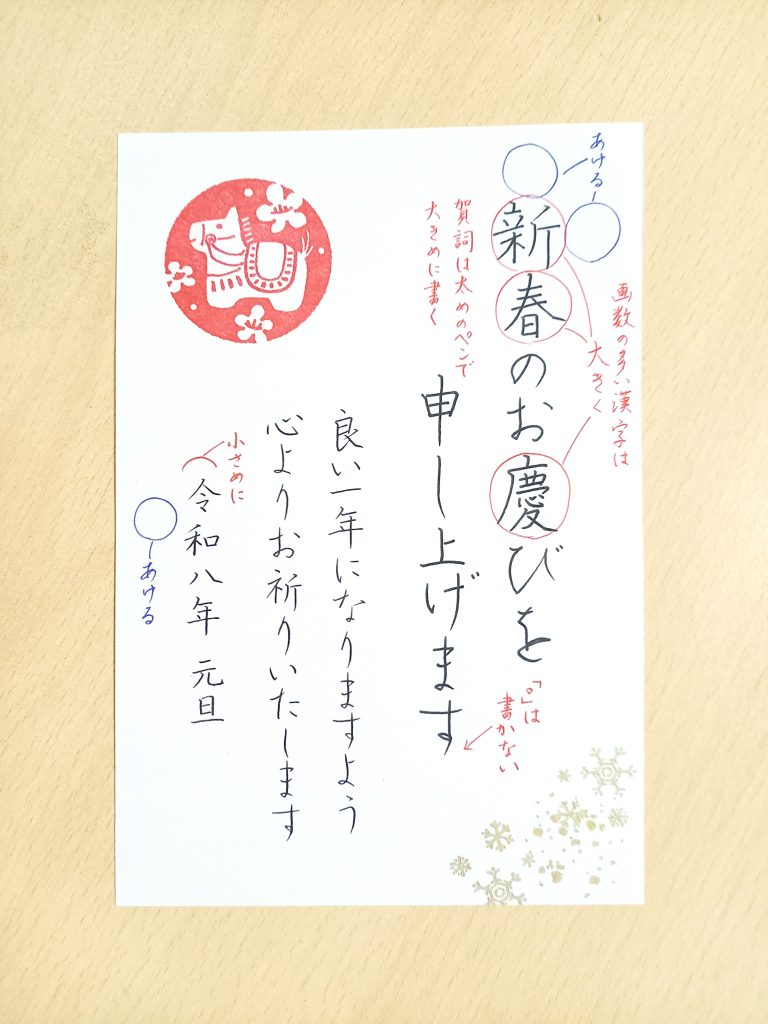 あける
画数の多い漢字は
大きく
新春のお慶びを
「。」は
書かない
賀詞は太めのペンで
大きめに書く
申し上げます
良い一年になりますよう
心よりお祈りいたします
小さめに
令和八年 元旦
あける